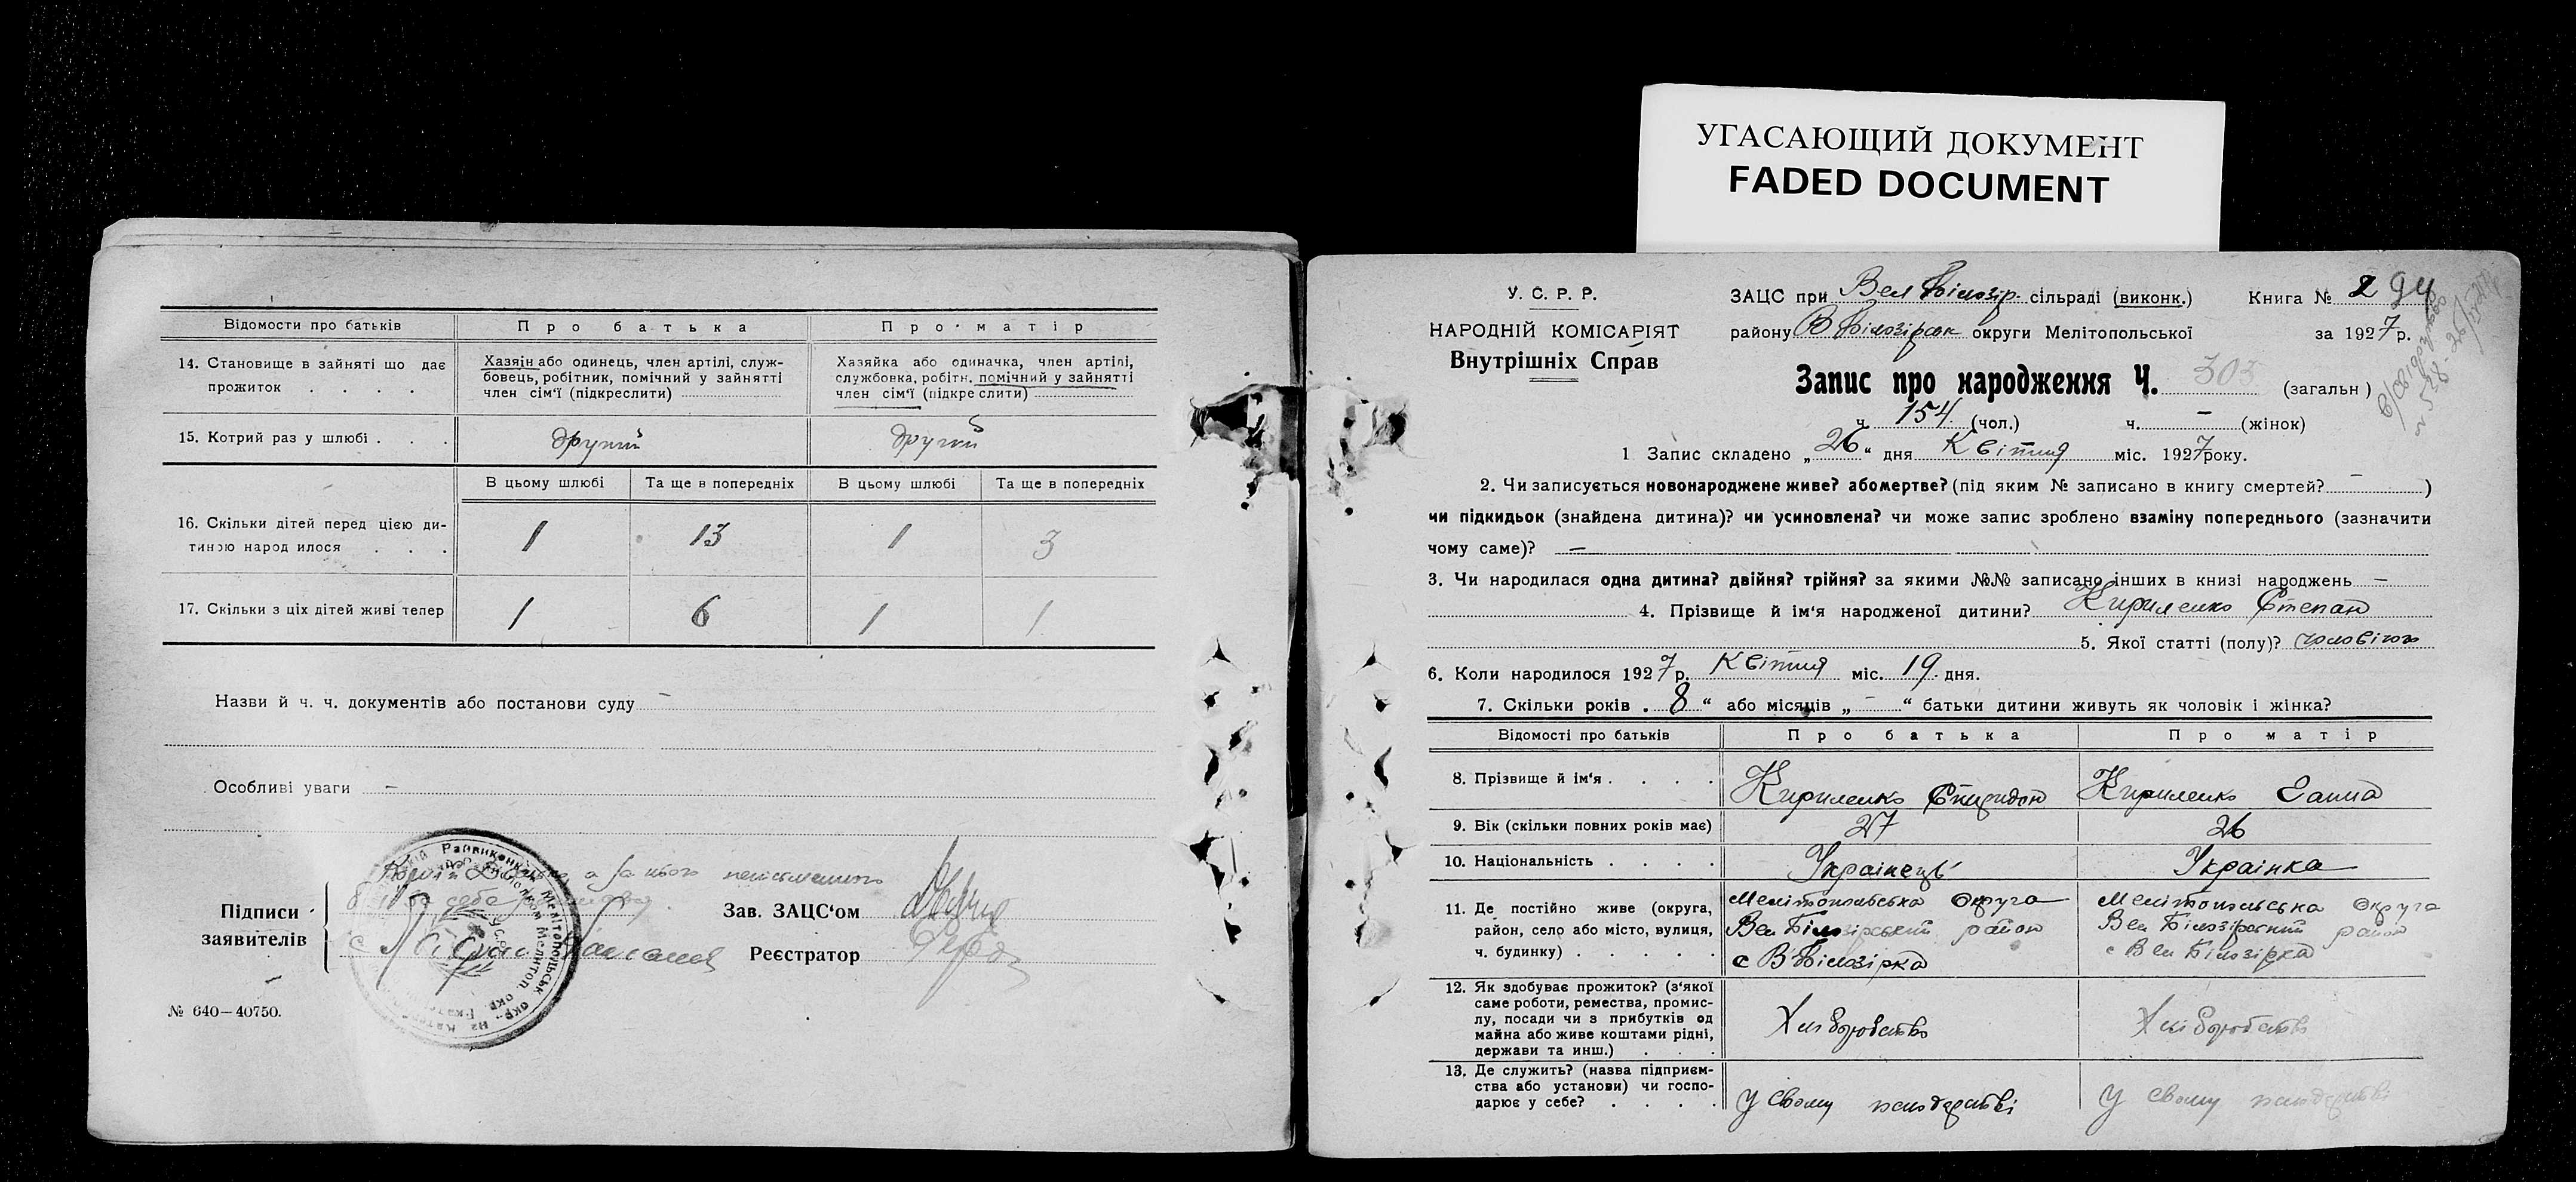 УГАСАЮЩИЙ ДОКУМЕНТ
FADED DOCUMENT
Відомости про батьків
Про батька
Про матір
14. Становище в зайняті що дає прожиток . . . .
Хазяін або одинець, член артілі, служ-
бовець, робітник, помічний у зайнятті
член сім'ї (підкреслити)
Хазяйка або одиначка, член артілі,
службовка, робітн. помічний у зайнятті
член сім'ї (підкреслити)
15. Котрий раз у шлюбі . . .
другий
другий
В цьому шлюбі
Та ще в попередніх
В цьому шлюбі
Та ще в попередніх
16. Скільки дітей перед цією ди-
тиною народилося . . .
1
13
1
3
17. Скільки з ціх дітей живі тепер
1
6
1
1
Назви й ч. ч. документів або постанови суду –
Особливі уваги –
Підписи
заявителів
а за нього неписьменного
Зав. ЗАЦС'ом
Реєстратор
№ 640—40750.
У. С. Р. Р.
НАРОДНІЙ КОМІСАРІЯТ
Внутрішніх Справ
ЗАЦС при Вел Білозір. сільраді (виконк.)
Книга № 2 94
району В Білозірськ округи Мелітопольської
за 1927 р.
Запис про народження Ч. 303 (загальн)
ч. 154 (чол.) ч. – (жінок)
1 Запис складено „26“ дня Квітня міс. 1927 року.
2. Чи записується новонароджене живе? або мертве? (під яким № записано в книгу смертей? – )
чи підкидьок (знайдена дитина)? чи усиновлена? чи може запис зроблено взаміну попереднього (зазначити
чому саме)? –
3. Чи народилася одна дитина? двійня? трійня? за якими №№ записано інших в книзі народжень –
4. Прізвище й ім'я народженої дитини? Кириленко Степан
5. Якої статті (полу)? чоловічого
6. Коли народилося 1927 р. Квітня міс. 19 дня.
7. Скільки років . 8 “ або місяців „ – “ батьки дитини живуть як чоловік і жінка?
Відомості про батьків
Про батька
Про матір
8. Прізвище й ім'я . . . .
Кириленко Спиридон
Кириленко Ганна
9. Вік (скільки повних років має)
27
26
10. Національність . . . .
Українець
Українка
11. Де постійно живе (округа,
район, село або місто, вулиця,
ч. будинку) . . . . .
Мелітопольська Округа
Вел Білозірський район
с В Білозірка
Мелітопольська Округа
Вел Білозірский район
с Вел Білозірка
12. Як здобуває прожиток? (з'якої
саме роботи, ремества, промис-
лу, посади чи з прибутків од
майна або живе коштами рідні,
держави та инш.) . . .
Хліборобство
Хліборобство
13. Де служить? (назва підприєм-
ства або установи) чи госпо-
дарює у себе? . . . .
У свому господарстві
У свому господарстві